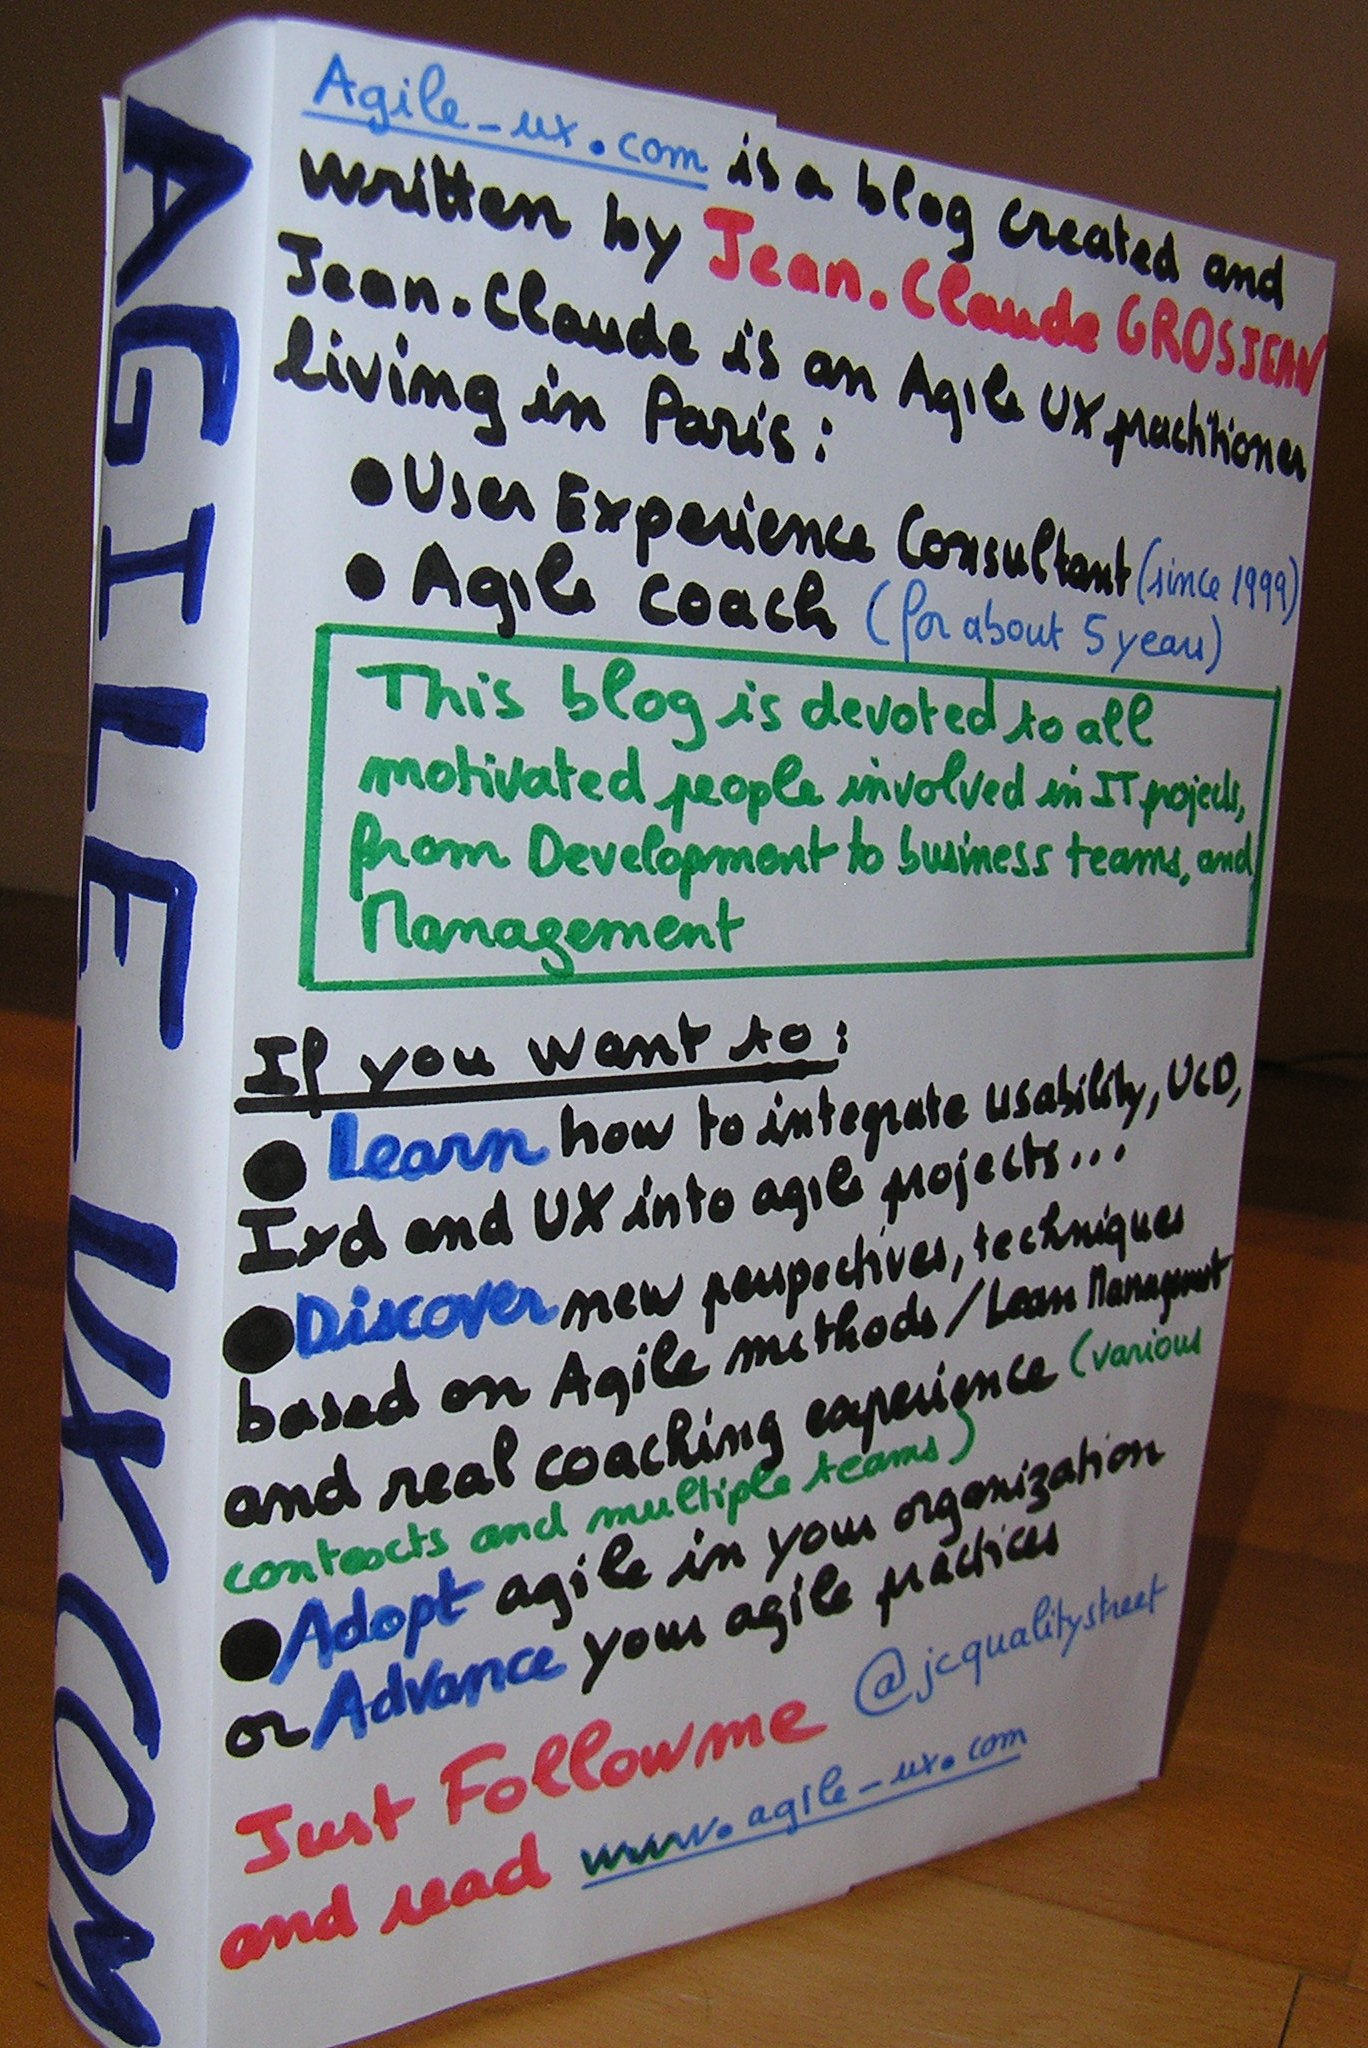 AGILE-UX.COM
Agile-ux.com is a blog created and
written by Jean-Claude GROSJEAN
Jean-Claude is an Agile UX practitioner
living in Paris:
● User Experience Consultant (since 1999)
● Agile coach (for about 5 years)
This blog is devoted to all
motivated people involved in IT projects,
from Development to business teams, and
Management
If you want to:
● Learn how to integrate usability, UCD,
Ixd and UX into agile projects...
● Discover new perspectives, techniques
based on Agile methods/Lean Management
and real coaching experience (various
contexts and multiple teams)
● Adopt agile in your organization
or Advance your agile practices
Just Follow me @jcqualitystreet
and read www.agile-ux.com